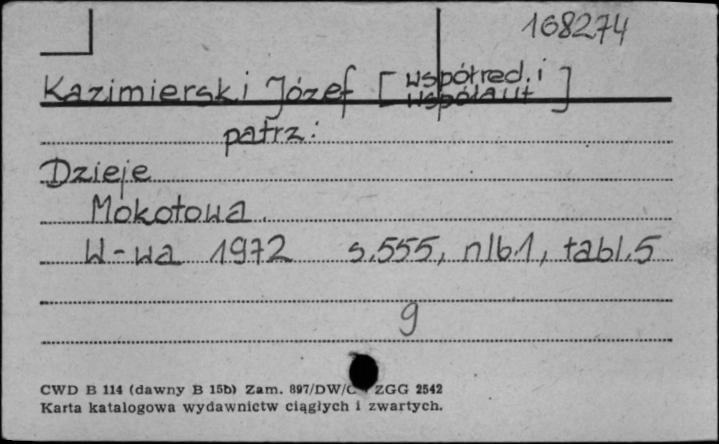 168274
Kazimierski Józef [współred. i współaut]
patrz:
Dzieje
Mokotowa.
W-wa 1972 s.555, nlb.1, tabl.5
9
CWD B 114 (dawny B 15b) Zam. 897/DW/C ZGG 2542
Karta katalogowa wydawnictw ciągłych i zwartych.